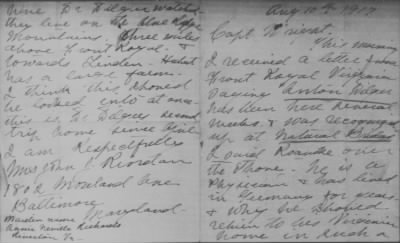 Aug 10th 1917
Capt.
This morning
I received a letter from
Front Royal Virginia
saying Anton
has been here several
weeks. & was recognized
up at Natural Bridge
I said Roanoke over
the Phone. He is a
Physician & has lived
in Germany for years.
& Why he should
return to his Virginia
home in such a
here Dr
they live on the Blue Ridge
Mountains. three miles
above Front Royal. &
towards Linden. Hubert
has a large farm.
I think this should
be looked into at once
this is Dr second
trip home since April
I am Respectfully
Mrs John J. Riordan
1802 Moreland Ave
Baltimore
Maryland.
Maiden name
Agnes Neville Richards
Riverton Va